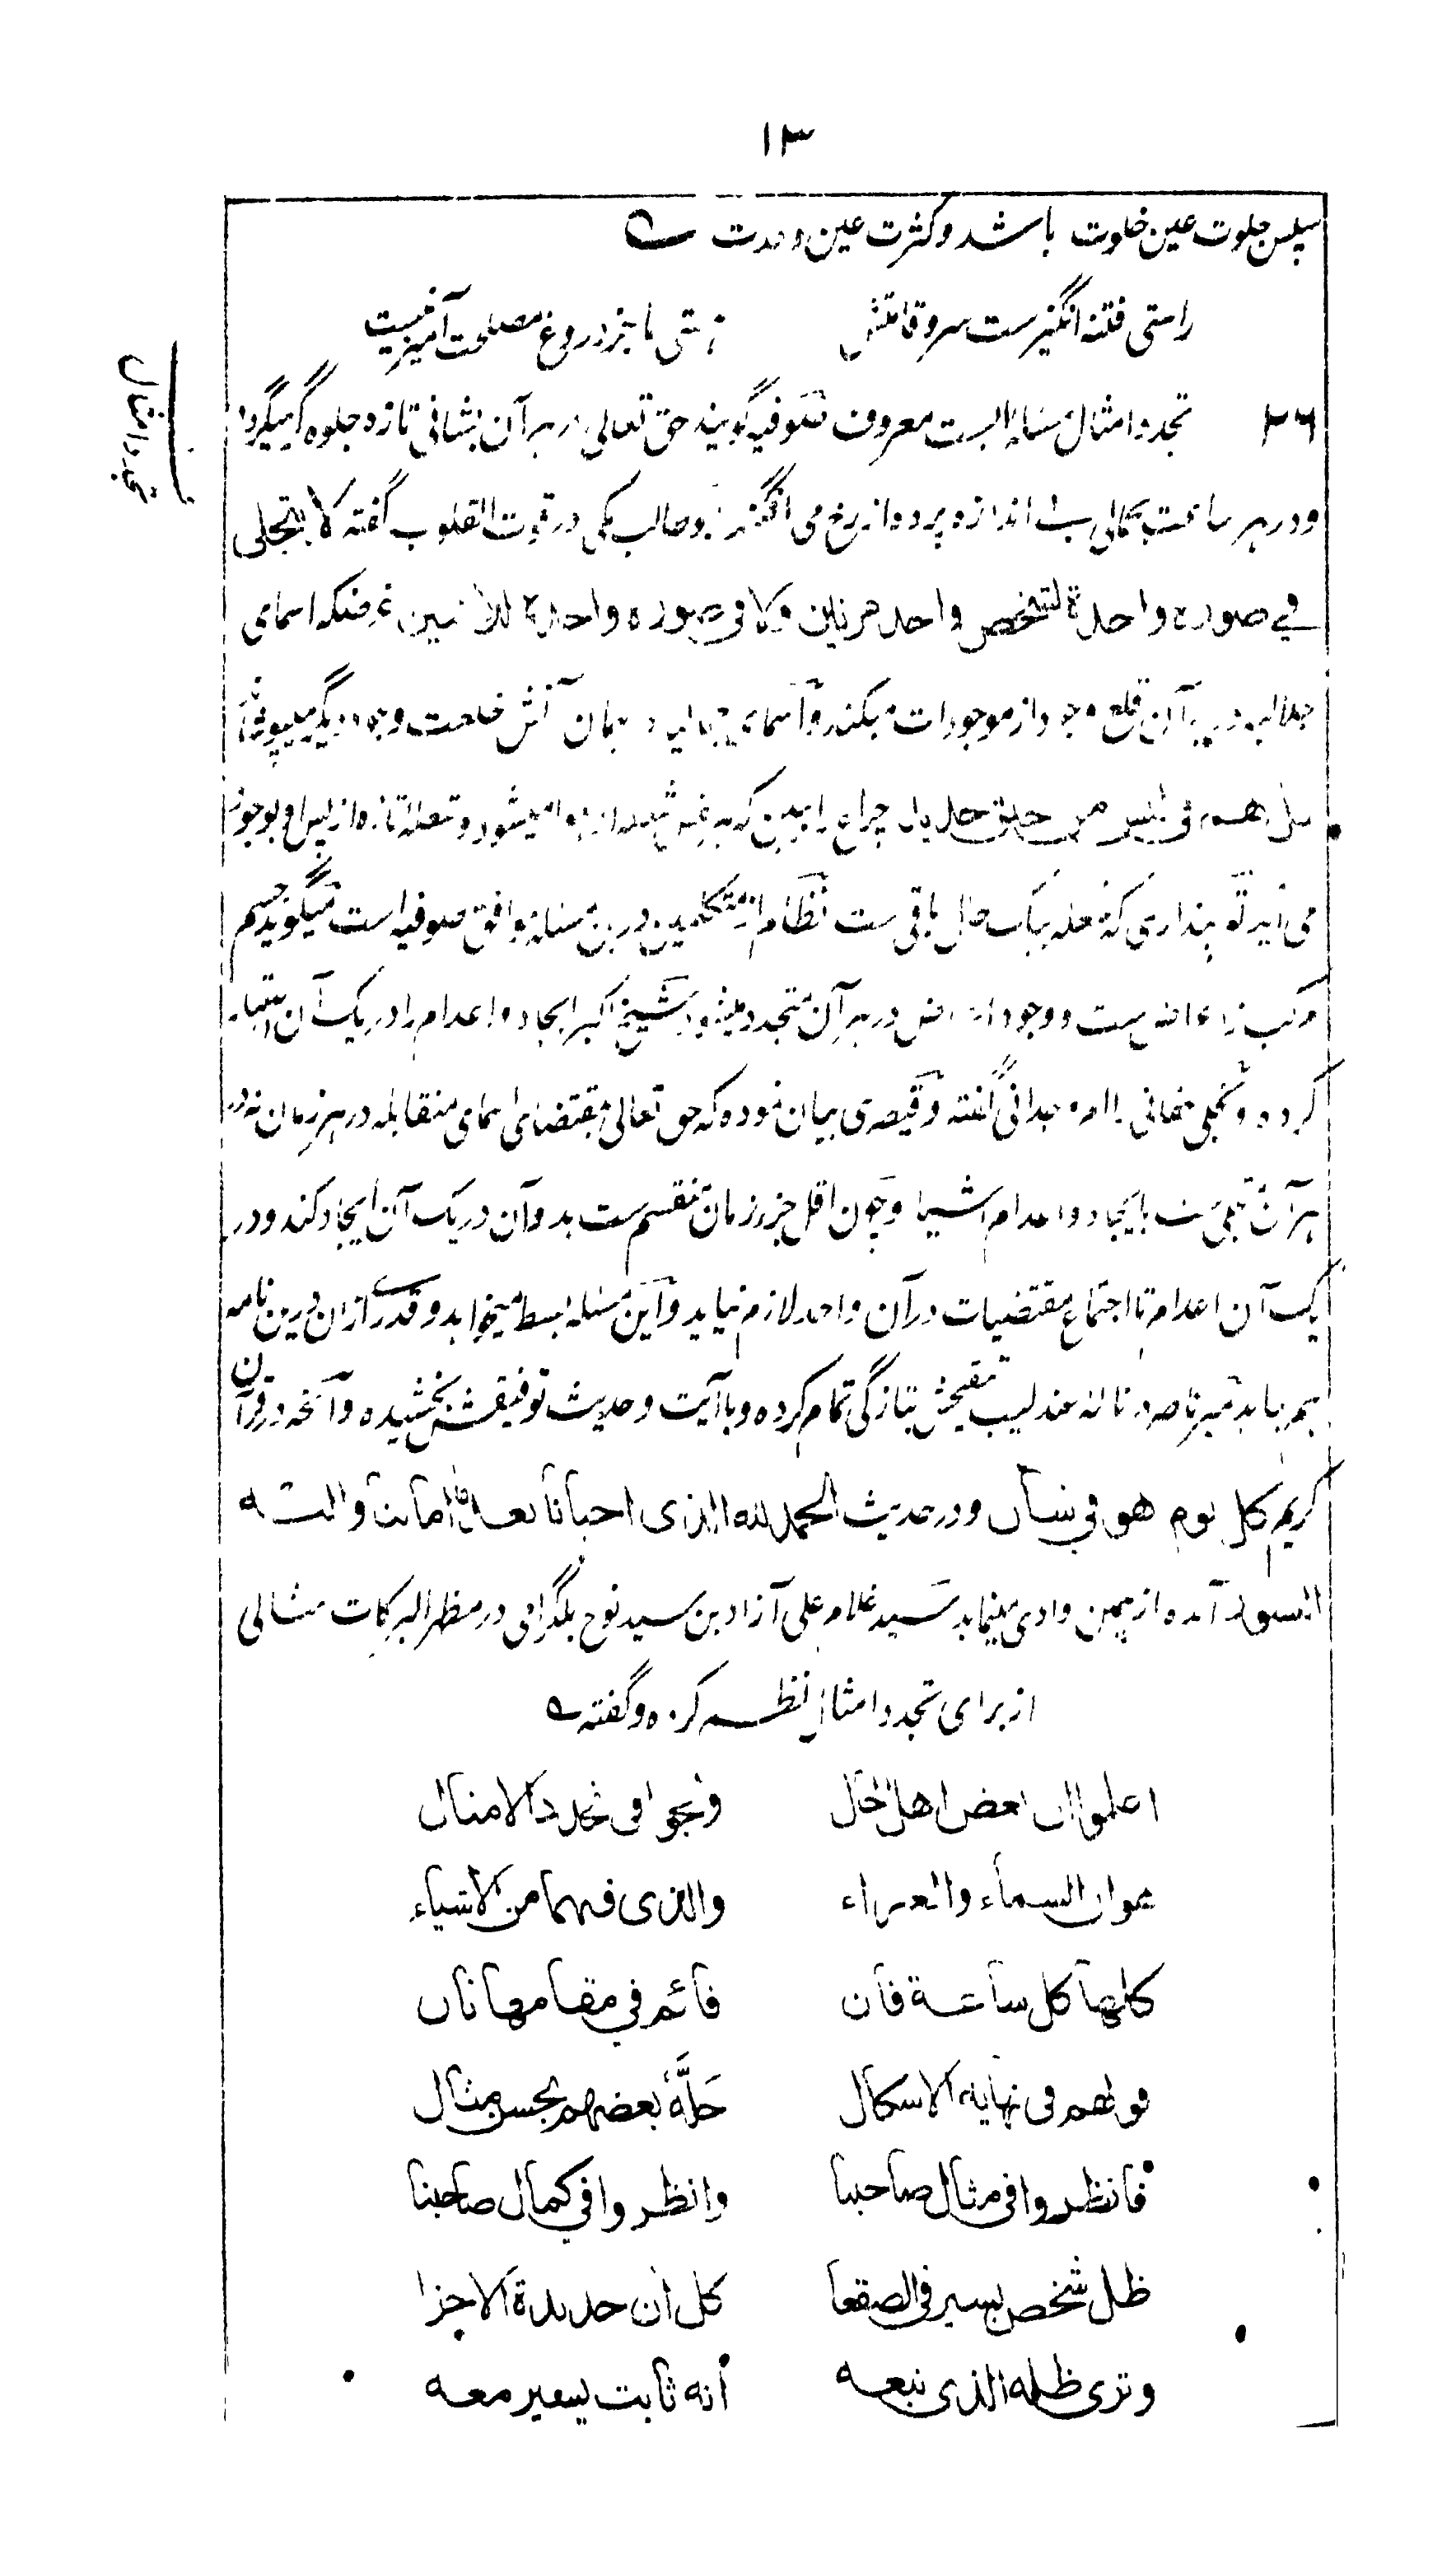 ۱۳
پس جلوت عین خلوت باشد و کثرت عین وحدت
راستی فتنه انگیزست سرو قامتش
هستی ما جز دروغ مصلحت آمیز نیست
تجدد امثال
۳۶ تجدد امثال مسئله ایست معروف صوفیه گویند حق تعالی در هر آن بشانی تازه جلوه گر میگردد
و در هر ساعت بکمالی بی اندازه پرده از رخ می افگند ابوطالب مکی در قوت القلوب گفته لا یتجلی
فی صورة واحدة لشخص واحد مرتین ولا فی صورة واحدة للاثنین غرضکه اسمای
جلالیه در هر آن قلع وجود از موجودات میکند و اسمای جمالیه در همان آنش خلعت وجود دیگر میپوشاند
بل هم فی لبس من خلق جدید چراغ را ببین که شعله از هوا میشود و شعله تازه از پس او بوجود
می آید تو پنداری که شعله بیک حال باقی ست نظام از متکلمین درین مسئله موافق صوفیه است میگوید جسم
مرکب از اعراض ست و وجود اعراض در هر آن متجدد میشود شیخ اکبر ایجاد و اعدام را در یک آن اعتبار
کرده و تجلی حقانی را امر وجدانی گفته و قیصری بیان نموده که حق تعالی بمقتضای اسمای متقابله در هر زمان نه در
هر آن تجلی ست بایجاد و اعدام اشیا و چون اقل جزر زمان منقسم ست بدو آن در یک آن ایجاد کند و در
یک آن اعدام تا اجتماع مقتضیات در آن واحد لازم نیاید و این مسئله بسط میخواهد و قدری ازان درین نامه
هم بیاید میر ناصر در ناله عندلیب تنقیحش بتازگی تمام کرده و با آیت و حدیث توفیقش بخشیده و آنچه در قرآن
کریم کل یوم هو فی شأن و در حدیث الحمد لله الذی احیانا بعد ما اماتنا و الیه
النشور آمده از همین وادی مینماید سید غلام علی آزاد بن سید نوح بلگرامی در مظهر البرکات مثالی
از برای تجدد امثال نظم کرده و گفته
اعلموا ان بعض اهل الحال
فی تجدد الامثال
ان السماء و
والذی فیهما من الاشیاء
کلها کل ساعة فان
قائم فی مقامها ثان
قولهم فی نهایة الاشکال
حلّه بعضهم بحسن مثال
فانظروا فی مثال صاحبنا
وانظروا فی کمال صاحبنا
ظل شخص یسیر فی الصقعا
کل ان جدیدة الاجزا
وتری ظله الذی تبعه
انه ثابت یسیر معه